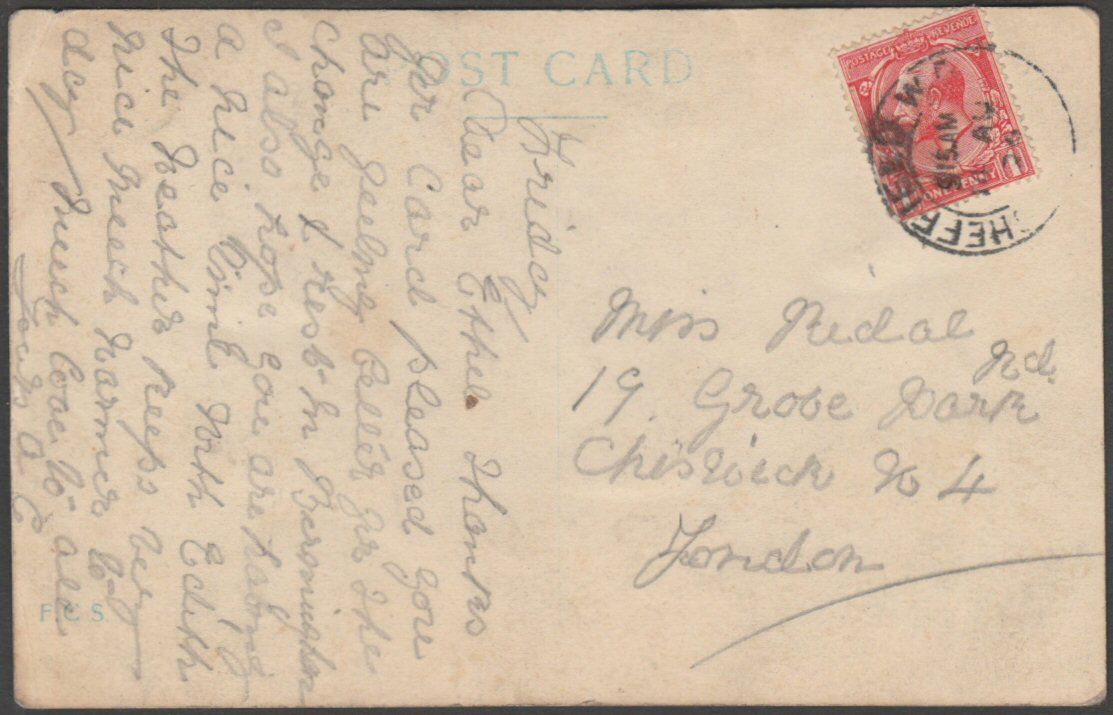 POST CARD
POSTAGE REVENUE
ONE PENNY
SHEFFIELD
9 15 AM
Friday
Dear Ethel Thanks
for Card pleased you
are feeling better for the
change & rest in
I also hope you are having
a nice time with Edith
The Weather keeps very
nice much Warmer to-
day Much Love to all
Yours a E
Miss Redal
19. Grove Park Rd.
Chiswick W 4
London
F.C S.